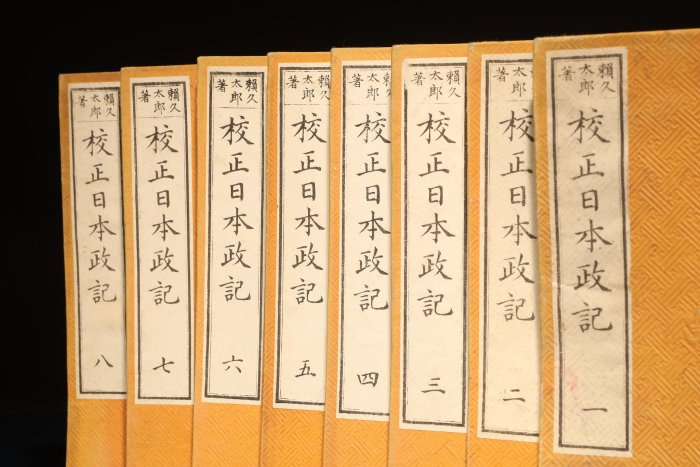 賴久
太郎
著
校正日本政記
一
賴久
太郎
著
校正日本政記
二
賴久
太郎
著
校正日本政記
三
賴久
太郎
著
校正日本政記
四
賴久
太郎
著
校正日本政記
五
賴久
太郎
著
校正日本政記
六
賴久
太郎
著
校正日本政記
七
賴久
太郎
著
校正日本政記
八